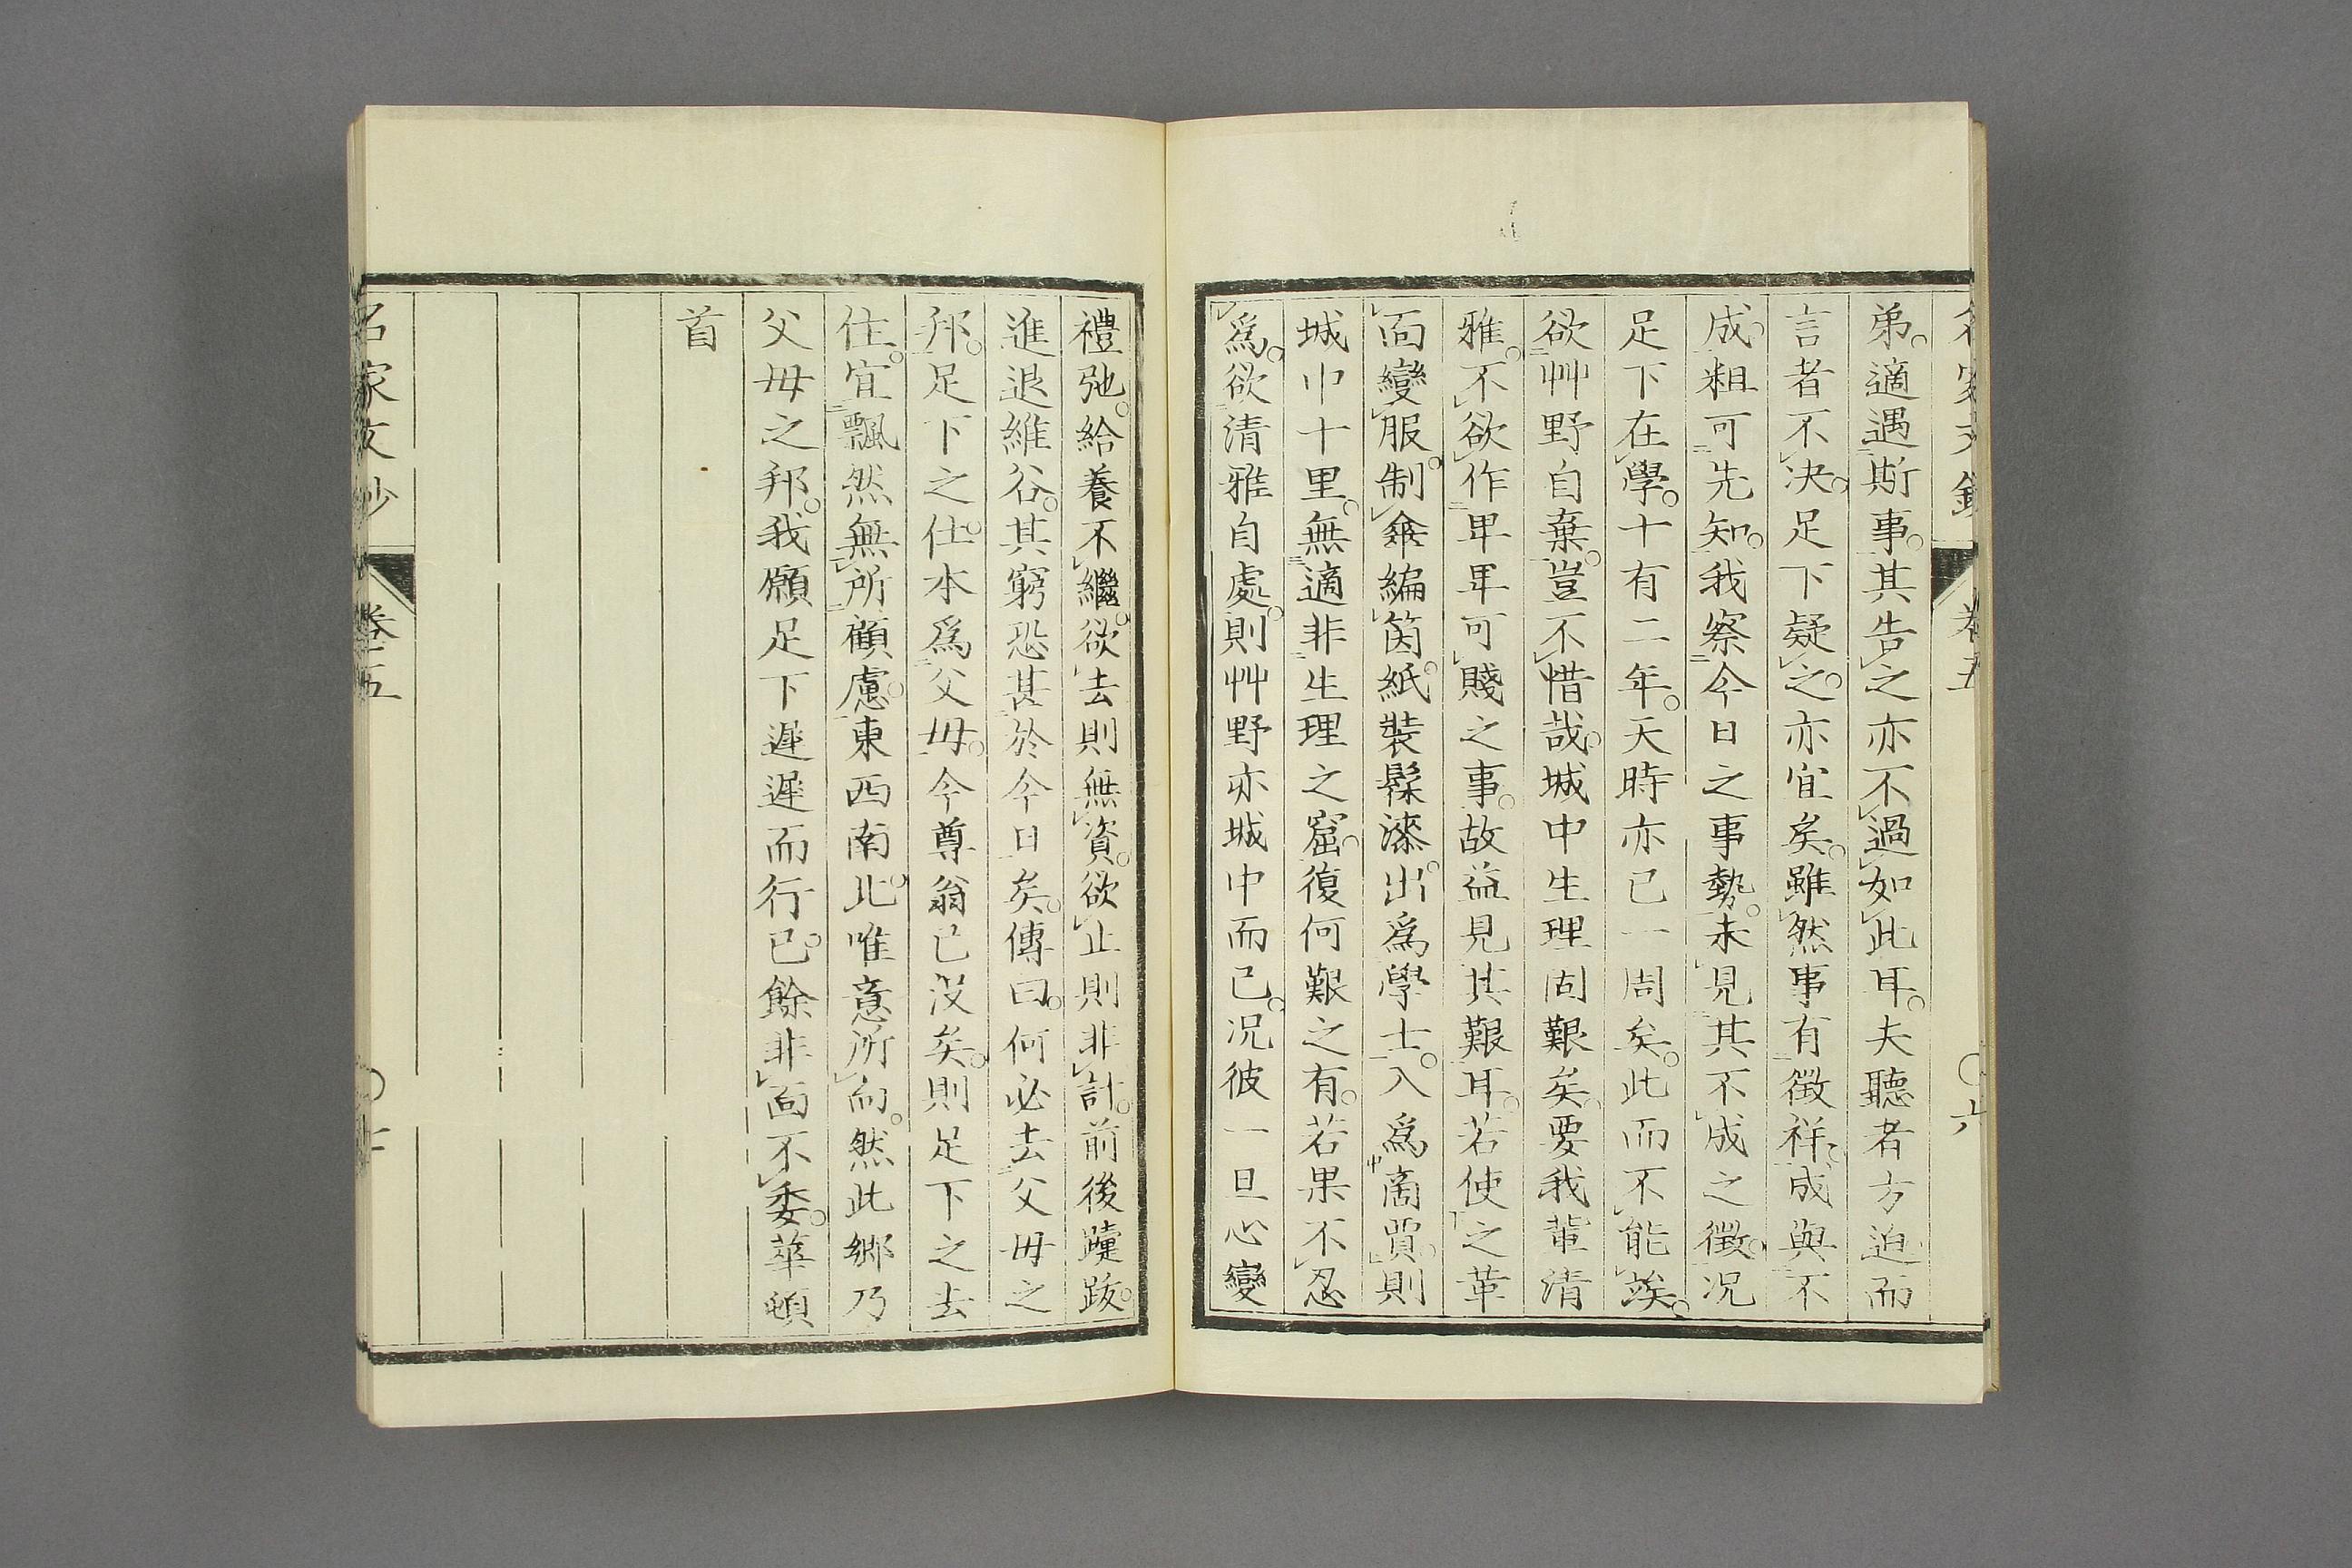 弟。適遇斯事。其告之亦不過如此耳。夫聽者方迫而
言者不决。足下疑之。亦宜矣。雖然事有徵祥。成與不
成。粗可先知。我察今日之事勢。未見其不成之徵。况
足下在學。十有二年。天時亦已一周矣。此而不能俟。
欲艸野自棄。豈不惜哉。城中生理固艱矣。要我輩清
雅。不欲作卑卑可賤之事。故益見其艱耳。若使之革
面變服。制傘編茵。紙裝髹漆。出爲學士。入爲商賈。則
城中十里。無適非生理之窟。復何艱之有。若果不忍
爲。欲清雅自處。則艸野亦城中而已。况彼一旦心變
禮弛。給養不繼。欲去則無資。欲止則非計。前後躓跋。
進退維谷。其窮恐甚於今日矣。傳曰。何必去父母之
邦。足下之仕。本爲父母。今尊翁已沒矣。則足下之去
住。宜飄然無所顧慮。東西南北。唯意所向。然此鄉乃
父母之邦。我願足下遲遲而行已。餘非面不委。華頓
首
名家文抄
卷五
〇七
卷五
〇六